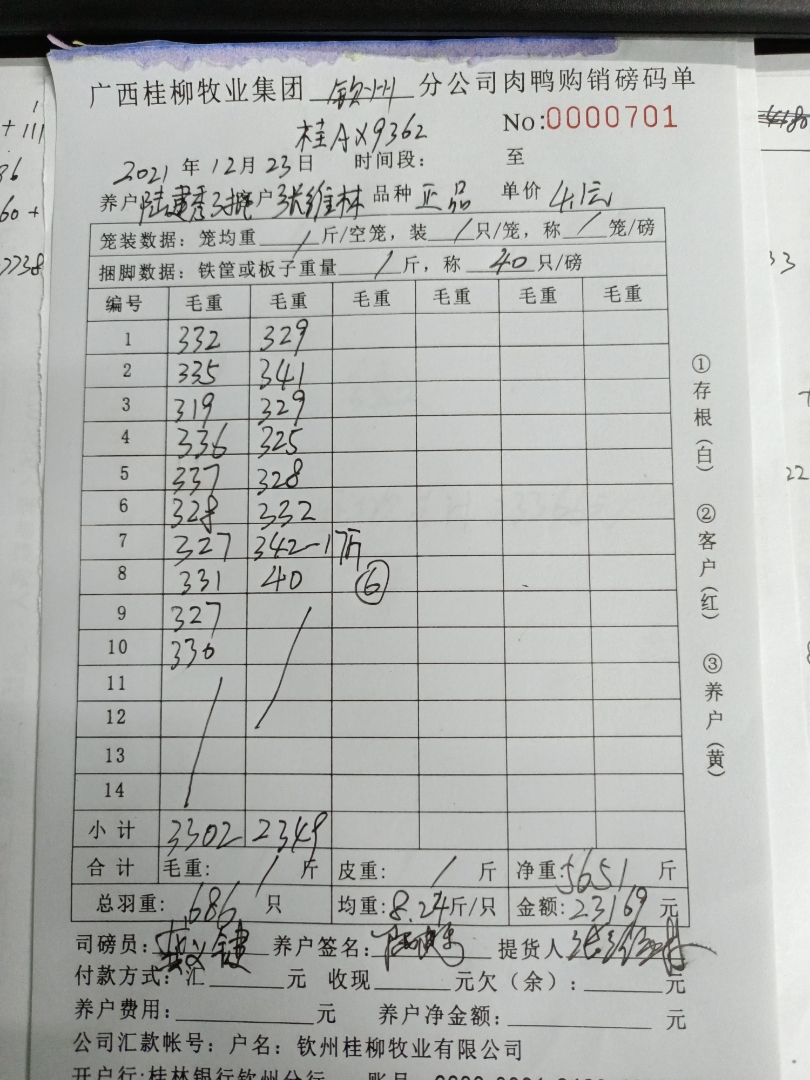 广西桂柳牧业集团 钦州 分公司肉鸭购销磅码单
桂AX9362 No:0000701
2021 年 12 月 23 日 时间段: 至
养户 陆建秀 客户 张维林 品种 正品 单价 4.1元
笼装数据: 笼均重 / 斤/空笼，装 / 只/笼，称 / 笼/磅
捆脚数据: 铁筐或板子重量 / 斤，称 40 只/磅
编号 毛重 毛重 毛重 毛重 毛重 毛重
1 332 329
2 335 341
3 319 329
4 336 325
5 337 328
6 328 332
7 327 342-17斤
8 331 40 ⑥
9 327
10 330
11
12
13
14
小计 3302 2349
合计 毛重: / 斤 皮重: / 斤 净重: 5651 斤
总羽重: 686 只 均重: 8.24 斤/只 金额: 23169 元
司磅员: 养户签名: 提货人 张维林
付款方式: 汇 元 收现 元欠（余）: 元
养户费用: 元 养户净金额: 元
公司汇款帐号: 户名: 钦州桂柳牧业有限公司
开户行:桂林银行钦州分行
①存根（白） ②客户（红） ③养户（黄）
+ 111
36
60 +
7738
33
22